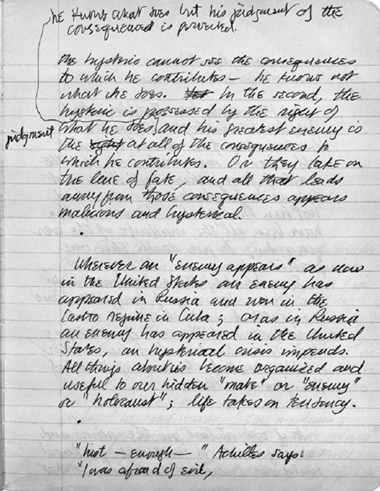 he knows what does but his judgment of the
consequenced is perverted.
the hysteric cannot see the consequences
to which he contributes — he knows not
what he does. In the second, the
hysteric is possessed by the right of
judgment
what he does, and his greatest enemy is
the at all of the consequences to
which he contributes. Or they take on
the of fate, and all that leads
away from those consequences appears
malicious and hysterical.
.
Wherever an "enemy appears" as now
in the United States an enemy has
appeared in Russia and even in the
Castro regime in Cuba; or as in Russia
an enemy has appeared in the United
States, an hysterical crisis impends.
All things about us become organized and
useful to our hidden "mate" or "enemy"
or "holocaust"; life takes on tendency.
.
"hist — enough — " Achilles says:
"I was afraid of evil,